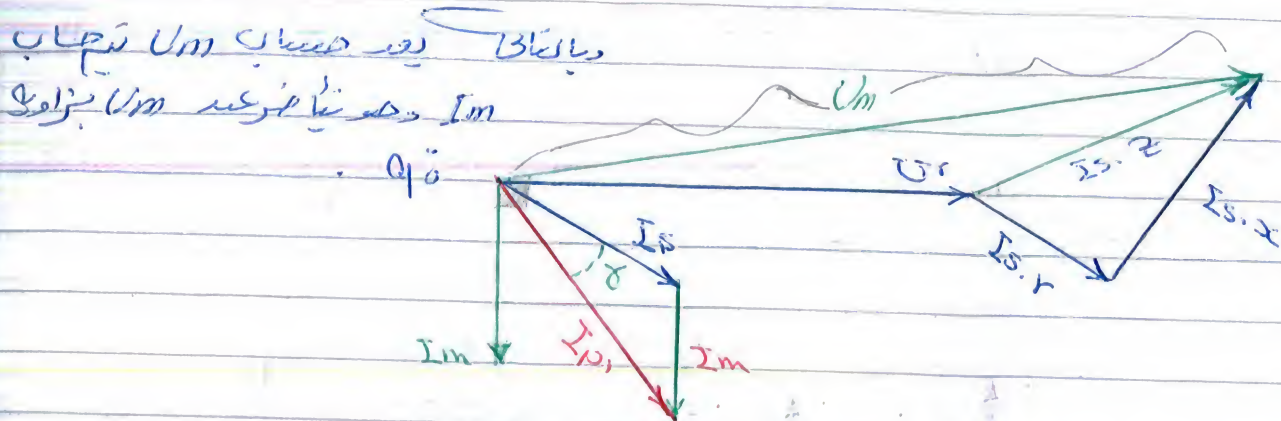 وبالتالي بعد حساب Um نتحصل
Im وهو متأخر عند Um بزاوية
90
Um
Ur
Is.z
Is.r
Is.x
Is
γ
Im
Ip,
Im